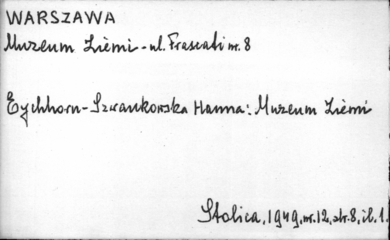 WARSZAWA
Muzeum Ziemi - ul. Frascati nr. 8
Eychhorn-Szwankowska Hanna: Muzeum Ziemi
Stolica, 1949, nr. 12, str. 8, il. 1.